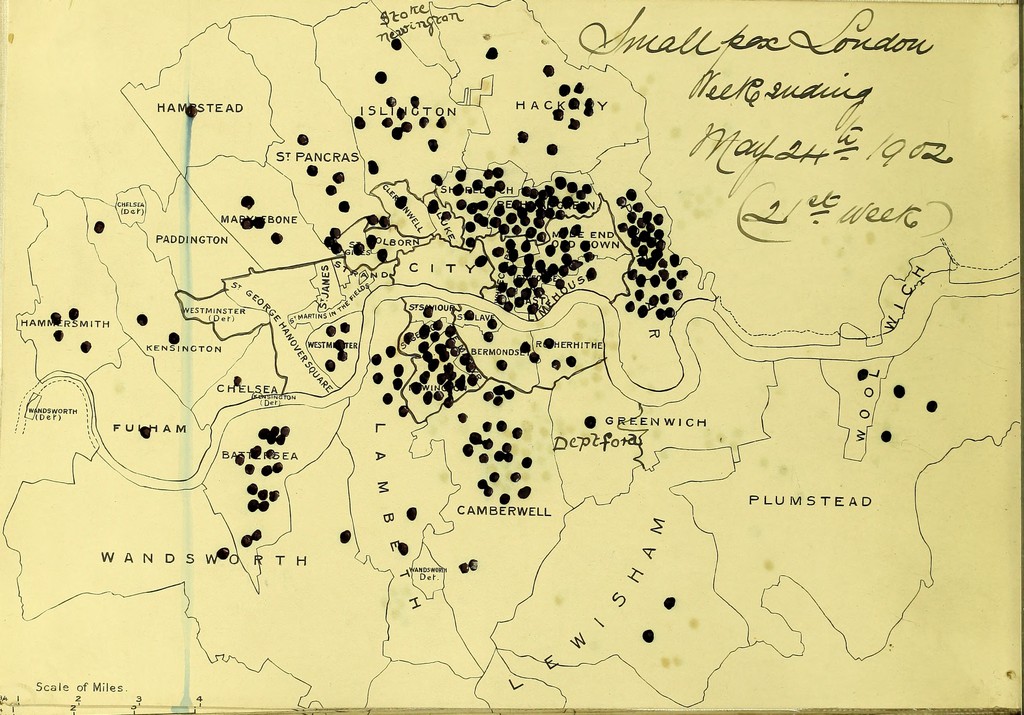 Stoke
newington
Small pox London
Week ending
May 24th 1902
(21st Week)
HAMPSTEAD
ISLINGTON
HACKNEY
ST PANCRAS
CHELSEA
(Det)
MARYLEBONE
PADDINGTON
CLERKENWELL
SHOREDITCH
BETHNAL GREEN
LUKE
HOLBORN
ST GILES
MILE END
OLD TOWN
STRAND
CITY
LIMEHOUSE
ST JAMES
ST MARTINS IN THE FIELDS
ST GEORGE HANOVER SQUARE
WESTMINSTER
(Det)
HAMMERSMITH
KENSINGTON
WESTMINSTER
ST SAVIOUR
ST OLAVE
BERMONDSEY
ROTHERHITHE
NEWINGTON
R
WOOLWICH
CHELSEA
KENSINGTON
(Det)
WANDSWORTH
(Det)
FULHAM
BATTERSEA
GREENWICH
Deptford
LAMBETH
CAMBERWELL
PLUMSTEAD
WANDSWORTH
WANDSWORTH
Det.
LEWISHAM
Scale of Miles.
1 2 3 4
2